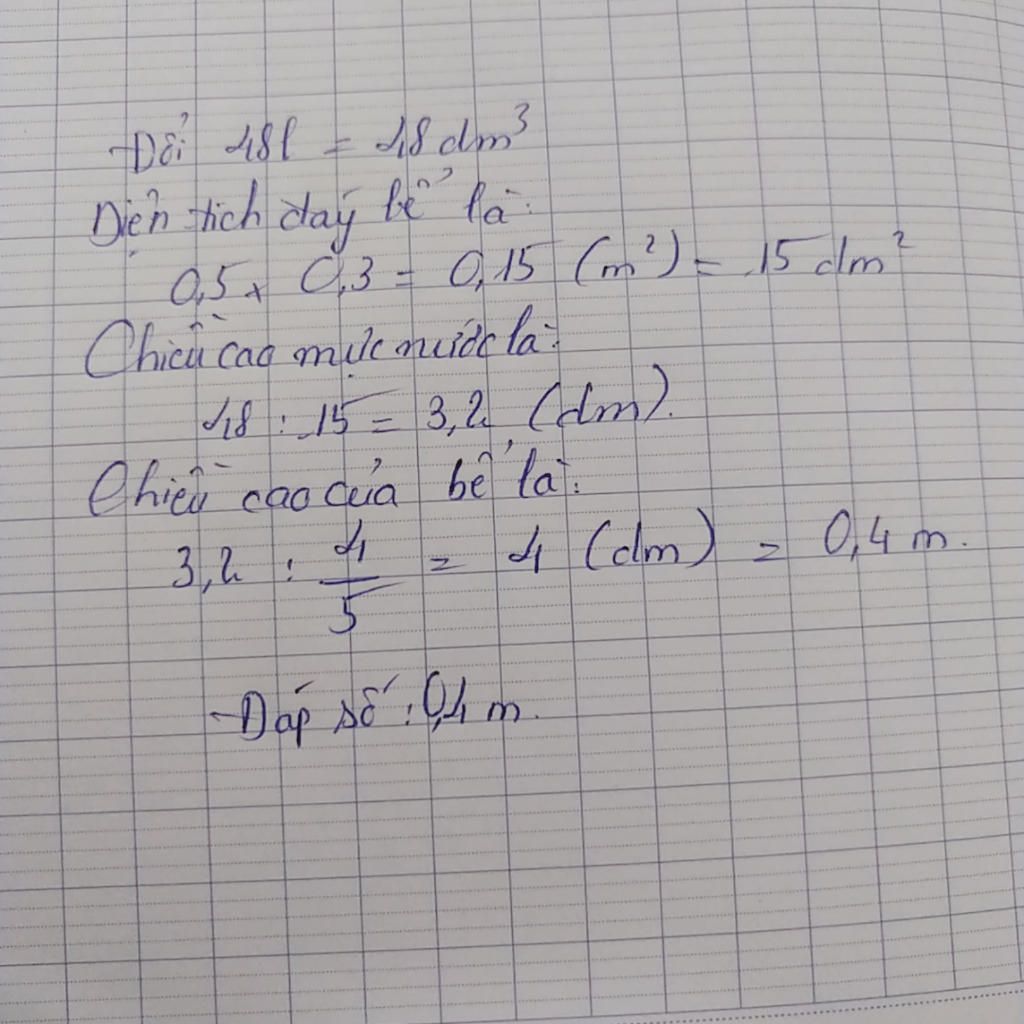 Đổi 48l = 48 dm³
Diện tích đáy bể là:
0,5 x 0,3 = 0,15 (m²) = 15 dm²
Chiều cao mực nước là:
48 : 15 = 3,2 (dm).
Chiều cao của bể là:
3,2 : 4/5 = 4 (dm) = 0,4 m.
Đáp số : 0,4 m.